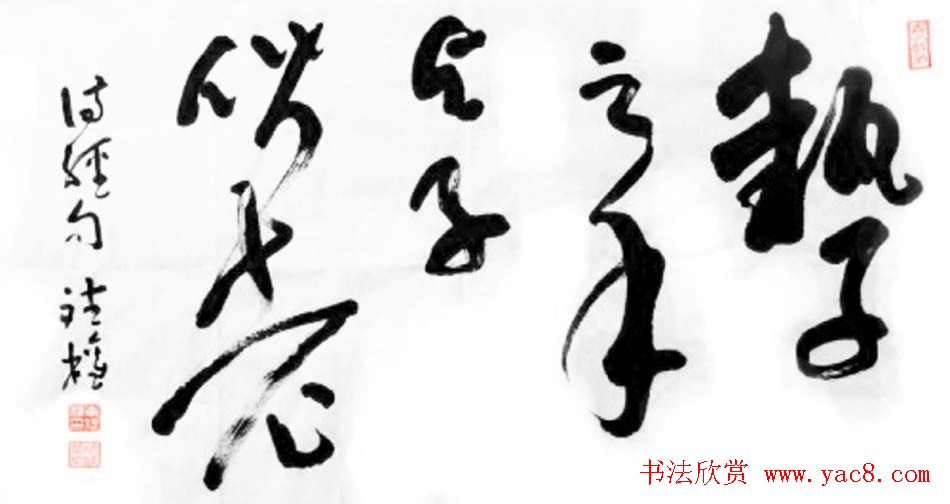 執子
之手
与子
偕老
诗經句
书法欣赏 www.yac8.com